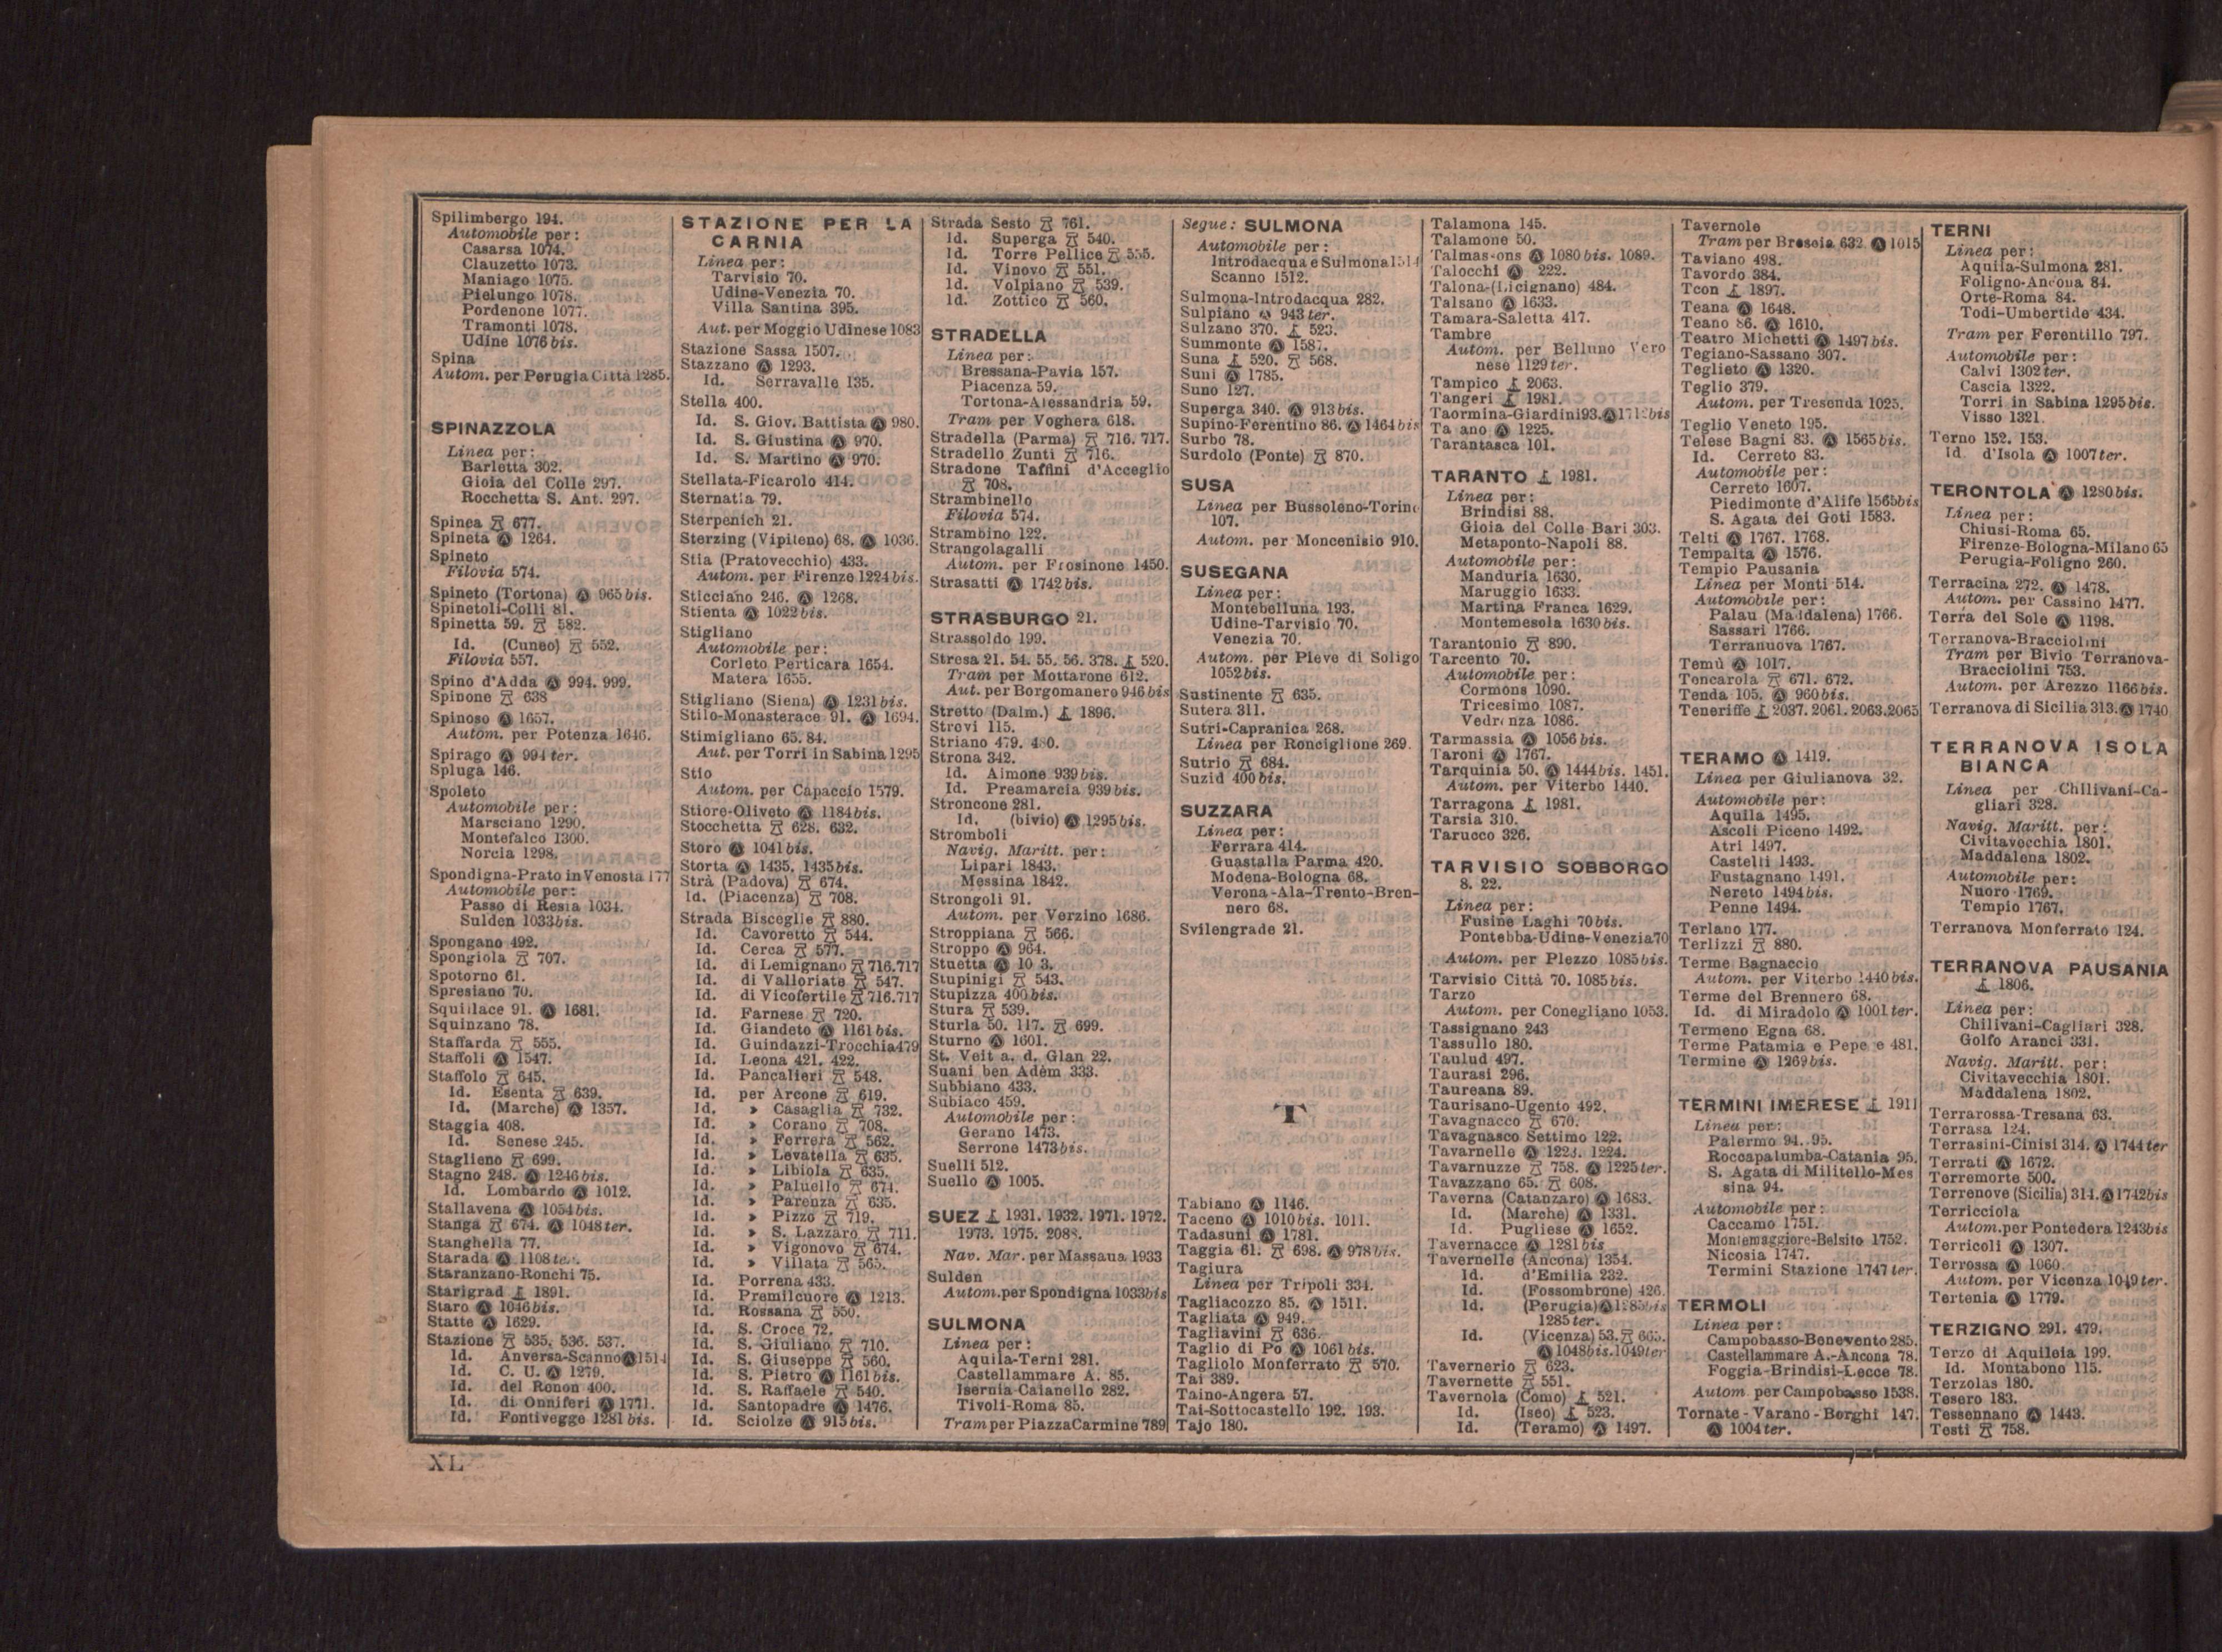 Spilimbergo 194.
Automobile per:
Casarsa 1074.
Clauzetto 1073.
Maniago 1075.
Pielungo 1078.
Pordenone 1077.
Tramonti 1078.
Udine 1076 bis.
Spina
Autom. per Perugia Città 1285.
SPINAZZOLA
Linea per:
Barletta 302.
Gioia del Colle 297.
Rocchetta S. Ant. 297.
Spinea 677.
Spineta Ⓐ 1264.
Spineto
Filovia 574.
Spineto (Tortona) Ⓐ 965 bis.
Spinetoli-Colli 81.
Spinetta 59. 582.
Id. (Cuneo) 552.
Filovia 557.
Spino d'Adda Ⓐ 994. 999.
Spinone 638
Spinoso Ⓐ 1657.
Autom. per Potenza 1646.
Spirago Ⓐ 994 ter.
Spluga 146.
Spoleto
Automobile per:
Marsciano 1290.
Montefalco 1300.
Norcia 1298.
Spondigna-Prato in Venosta 177
Automobile per:
Passo di Resia 1034.
Sulden 1033 bis.
Spongano 492.
Spongiola 707.
Spotorno 61.
Spresiano 70.
Squillace 91. Ⓐ 1681.
Squinzano 78.
Staffarda 555.
Staffoli Ⓐ 1547.
Staffolo 645.
Id. Esenta 639.
Id. (Marche) Ⓐ 1357.
Staggia 408.
Id. Senese 245.
Staglieno 699.
Stagno 248. Ⓐ 1246 bis.
Id. Lombardo Ⓐ 1012.
Stallavena Ⓐ 1054 bis.
Stanga 674. Ⓐ 1048 ter.
Stanghella 77.
Starada Ⓐ 1108 ter.
Staranzano-Ronchi 75.
Starigrad 1891.
Staro Ⓐ 1046 bis.
Statte Ⓐ 1629.
Stazione 535. 536. 537.
Id. Anversa-Scanno Ⓐ 1514
Id. C. U. Ⓐ 1279.
Id. del Ronon 400.
Id. di Onniferi Ⓐ 1771.
Id. Fontivegge 1281 bis.
STAZIONE PER LA
CARNIA
Linea per:
Tarvisio 70.
Udine-Venezia 70.
Villa Santina 395.
Aut. per Moggio Udinese 1083
Stazione Sassa 1507.
Stazzano Ⓐ 1293.
Id. Serravalle 135.
Stella 400.
Id. S. Giov. Battista Ⓐ 980.
Id. S. Giustina Ⓐ 970.
Id. S. Martino Ⓐ 970.
Stellata-Ficarolo 414.
Sternatia 79.
Sterpenich 21.
Sterzing (Vipiteno) 68. Ⓐ 1036.
Stia (Pratovecchio) 433.
Autom. per Firenze 1224 bis.
Sticciano 246. Ⓐ 1268.
Stienta Ⓐ 1022 bis.
Stigliano
Automobile per:
Corleto Perticara 1654.
Matera 1655.
Stigliano (Siena) Ⓐ 1231 bis.
Stilo-Monasterace 91. Ⓐ 1694.
Stimigliano 65. 84.
Aut. per Torri in Sabina 1295
Stio
Autom. per Capaccio 1579.
Stiore-Oliveto Ⓐ 1184 bis.
Stocchetta 628. 632.
Storo Ⓐ 1041 bis.
Storta Ⓐ 1435. 1435 bis.
Strà (Padova) 674.
Id. (Piacenza) 708.
Strada Bisceglie 880.
Id. Cavoretto 544.
Id. Cerca 577.
Id. di Lemignano 716.717
Id. di Valloriate 547.
Id. di Vicofertile 716.717
Id. Farnese 720.
Id. Giandeto Ⓐ 1161 bis.
Id. Guindazzi-Trocchia 479
Id. Leona 421. 422.
Id. Pancalieri 548.
Id. per Arcone 619.
Id. » Casaglia 732.
Id. » Corano 708.
Id. » Ferrera 562.
Id. » Levatella 635.
Id. » Libiola 635.
Id. » Paluello 674.
Id. » Parenza 635.
Id. » Pizzo 719.
Id. » S. Lazzaro 711.
Id. » Vigonovo 674.
Id. » Villata 565.
Id. Porrena 433.
Id. Premilcuore Ⓐ 1213.
Id. Rossana 550.
Id. S. Croce 72.
Id. S. Giuliano 710.
Id. S. Giuseppe 560.
Id. S. Pietro Ⓐ 1161 bis.
Id. S. Raffaele 540.
Id. Santopadre Ⓐ 1476.
Id. Sciolze Ⓐ 915 bis.
Strada Sesto 761.
Id. Superga 540.
Id. Torre Pellice 555.
Id. Vinovo 551.
Id. Volpiano 539.
Id. Zottico 560.
STRADELLA
Linea per:
Bressana-Pavia 157.
Piacenza 59.
Tortona-Alessandria 59.
Tram per Voghera 618.
Stradella (Parma) 716. 717.
Stradello Zunti 716.
Stradone Taffini d'Acceglio
708.
Strambinello
Filovia 574.
Strambino 122.
Strangolagalli
Autom. per Frosinone 1450.
Strasatti Ⓐ 1742 bis.
STRASBURGO 21.
Strassoldo 199.
Stresa 21. 54. 55. 56. 378. 520.
Tram per Mottarone 612.
Aut. per Borgomanero 946 bis
Stretto (Dalm.) 1896.
Strevi 115.
Striano 479. 480.
Strona 342.
Id. Aimone 939 bis.
Id. Preamarcia 939 bis.
Stroncone 281.
Id. (bivio) Ⓐ 1295 bis.
Stromboli
Navig. Maritt. per:
Lipari 1843.
Messina 1842.
Strongoli 91.
Autom. per Verzino 1686.
Stroppiana 566.
Stroppo Ⓐ 964.
Stuetta Ⓐ
Stupinigi 543.
Stupizza 400 bis.
Stura 539.
Sturla 50. 117. 699.
Sturno Ⓐ 1601.
St. Veit a. d. Glan 22.
Suani ben Adèm 333.
Subbiano 433.
Subiaco 459.
Automobile per:
Gerano 1473.
Serrone 1473 bis.
Suelli 512.
Suello Ⓐ 1005.
SUEZ 1931. 1932. 1971. 1972.
1973. 1975.
Nav. Mar. per Massaua 1933
Sulden
Autom. per Spondigna 1033 bis
SULMONA
Linea per:
Aquila-Terni 281.
Castellammare A. 85.
Isernia-Caianello 282.
Tivoli-Roma 85.
Tram per Piazza Carmine 789
Segue: SULMONA
Automobile per:
Introdacqua e Sulmona 1514
Scanno 1512.
Sulmona-Introdacqua 282.
Sulpiano Ⓐ 943 ter.
Sulzano 370. 523.
Summonte Ⓐ 1587.
Suna 520. 568.
Suni Ⓐ 1785.
Suno 127.
Superga 340. Ⓐ 913 bis.
Supino-Ferentino 86. Ⓐ 1464 bis
Surbo 78.
Surdolo (Ponte) 870.
SUSA
Linea per Bussoleno-Torino
107.
Autom. per Moncenisio 910.
SUSEGANA
Linea per:
Montebelluna 193.
Udine-Tarvisio 70.
Venezia 70.
Autom. per Pieve di Soligo
1052 bis.
Sustinente 635.
Sutera 311.
Sutri-Capranica 268.
Linea per Ronciglione 269.
Sutrio 684.
Suzid 400 bis.
SUZZARA
Linea per:
Ferrara 414.
Guastalla Parma 420.
Modena-Bologna 68.
Verona-Ala-Trento-Bren-
nero 68.
Svilengrade 21.
T
Tabiano Ⓐ 1146.
Taceno Ⓐ 1010 bis. 1011.
Tadasuni Ⓐ 1781.
Taggia 61. 698. Ⓐ 978 bis.
Tagiura
Linea per Tripoli 334.
Tagliacozzo 85. Ⓐ 1511.
Tagliata Ⓐ 949.
Tagliavini 636.
Taglio di Po Ⓐ 1061 bis.
Tagliolo Monferrato 570.
Tai 389.
Taino-Angera 57.
Tai-Sottocastello 192. 193.
Tajo 180.
Talamona 145.
Talamone 50.
Talmassons Ⓐ 1080 bis. 1089.
Talocchi Ⓐ 222.
Talona-(Licignano) 484.
Talsano Ⓐ 1633.
Tamara-Saletta 417.
Tambre
Autom. per Belluno Vero
nese 1129 ter.
Tampico 2063.
Tangeri 1981.
Taormina-Giardini 93. Ⓐ 1712 bis
Ta ano Ⓐ 1225.
Tarantasca 101.
TARANTO 1981.
Linea per:
Brindisi 88.
Gioia del Colle Bari 303.
Metaponto-Napoli 88.
Automobile per:
Manduria 1630.
Maruggio 1633.
Martina Franca 1629.
Montemesola 1630 bis.
Tarantonio 890.
Tarcento 70.
Automobile per:
Cormons 1090.
Tricesimo 1087.
Vedronza 1086.
Tarmassia Ⓐ 1056 bis.
Taroni Ⓐ 1767.
Tarquinia 50. Ⓐ 1444 bis. 1451.
Autom. per Viterbo 1440.
Tarragona 1981.
Tarsia 310.
Tarucco 326.
TARVISIO SOBBORGO
8. 22.
Linea per:
Fusine Laghi 70 bis.
Pontebba-Udine-Venezia 70
Autom. per Plezzo 1085 bis.
Tarvisio Città 70. 1085 bis.
Tarzo
Autom. per Conegliano 1053.
Tassignano 243
Tassullo 180.
Taulud 497.
Taurasi 296.
Taureana 89.
Taurisano-Ugento 492.
Tavagnacco 670.
Tavagnasco Settimo 122.
Tavarnelle Ⓐ 1223. 1224.
Tavarnuzze 758. Ⓐ 1225 ter.
Tavazzano 65. 608.
Taverna (Catanzaro) Ⓐ 1683.
Id. (Marche) Ⓐ 1331.
Id. Pugliese Ⓐ 1652.
Tavernacce Ⓐ 1281 bis
Tavernelle (Ancona) 1354.
Id. d'Emilia 232.
Id. (Fossombrone) 426.
Id. (Perugia) Ⓐ 1285 bis
1285 ter.
Id. (Vicenza) 53. 665.
Ⓐ 1048 bis. 1049 ter
Tavernerio 623.
Tavernette 551.
Tavernola (Como) 521.
Id. (Iseo) 523.
Id. (Teramo) Ⓐ 1497.
Tavernole
Tram per Brescia 632. Ⓐ 1015
Taviano 498.
Tavordo 384.
Tcon 1897.
Teana Ⓐ 1648.
Teano 86. Ⓐ 1610.
Teatro Michetti Ⓐ 1497 bis.
Tegiano-Sassano 307.
Teglieto Ⓐ 1320.
Teglio 379.
Autom. per Tresenda 1025.
Teglio Veneto 195.
Telese Bagni 83. Ⓐ 1565 bis.
Id. Cerreto 83.
Automobile per:
Cerreto 1607.
Piedimonte d'Alife 1565 bis
S. Agata dei Goti 1583.
Telti Ⓐ 1767. 1768.
Tempalta Ⓐ 1576.
Tempio Pausania
Linea per Monti 514.
Automobile per:
Palau (Maddalena) 1766.
Sassari 1766.
Terranuova 1767.
Temù Ⓐ 1017.
Tencarola 671. 672.
Tenda 105. Ⓐ 960 bis.
Teneriffe 2037. 2061. 2063. 2065
TERAMO Ⓐ 1419.
Linea per Giulianova 32.
Automobile per:
Aquila 1495.
Ascoli Piceno 1492.
Atri 1497.
Castelli 1493.
Fustagnano 1491.
Nereto 1494 bis.
Penne 1494.
Terlano 177.
Terlizzi 880.
Terme Bagnaccio
Autom. per Viterbo 1440 bis.
Terme del Brennero 68.
Id. di Miradolo Ⓐ 1001 ter.
Termeno Egna 68.
Terme Patamia e Pepe e 481.
Termine Ⓐ 1269 bis.
TERMINI IMERESE 1911
Linea per:
Palermo 94. 95.
Roccapalumba-Catania 95.
S. Agata di Militello-Mes
sina 94.
Automobile per:
Caccamo 1751.
Montemaggiore-Belsito 1752.
Nicosia 1747.
Termini Stazione 1747 ter.
TERMOLI
Linea per:
Campobasso-Benevento 285.
Castellammare A.-Ancona 78.
Foggia-Brindisi-Lecce 78.
Autom. per Campobasso 1538.
Tornate-Varano-Borghi 147.
Ⓐ 1004 ter.
TERNI
Linea per:
Aquila-Sulmona 281.
Foligno-Ancona 84.
Orte-Roma 84.
Todi-Umbertide 434.
Tram per Ferentillo 797.
Automobile per:
Calvi 1302 ter.
Cascia 1322.
Torri in Sabina 1295 bis.
Visso 1321.
Terno 152. 153.
Id. d'Isola Ⓐ 1007 ter.
TERONTOLA Ⓐ 1280 bis.
Linea per:
Chiusi-Roma 65.
Firenze-Bologna-Milano 65
Perugia-Foligno 260.
Terracina 272. Ⓐ 1478.
Autom. per Cassino 1477.
Terra del Sole Ⓐ 1198.
Terranova-Bracciolini
Tram per Bivio Terranova-
Bracciolini 753.
Autom. per Arezzo 1166 bis.
Terranova di Sicilia 313. Ⓐ 1740
TERRANOVA ISOLA
BIANCA
Linea per Chilivani-Ca-
gliari 328.
Navig. Maritt. per:
Civitavecchia 1801.
Maddalena 1802.
Automobile per:
Nuoro 1769.
Tempio 1767.
Terranova Monferrato 124.
TERRANOVA PAUSANIA
1806.
Linea per:
Chilivani-Cagliari 328.
Golfo Aranci 331.
Navig. Maritt. per:
Civitavecchia 1801.
Maddalena 1802.
Terrarossa-Tresana 63.
Terrasa 124.
Terrasini-Cinisi 314. Ⓐ 1744 ter
Terrati Ⓐ 1672.
Terremorte 500.
Terrenove (Sicilia) 314. Ⓐ 1742 bis
Terricciola
Autom. per Pontedera 1243 bis
Terricoli Ⓐ 1307.
Terrossa Ⓐ 1060.
Autom. per Vicenza 1049 ter.
Tertenia Ⓐ 1779.
TERZIGNO 291. 479.
Terzo di Aquileia 199.
Id. Montabone 115.
Terzolas 180.
Tesero 183.
Tessennano Ⓐ 1443.
Testi 758.
XL